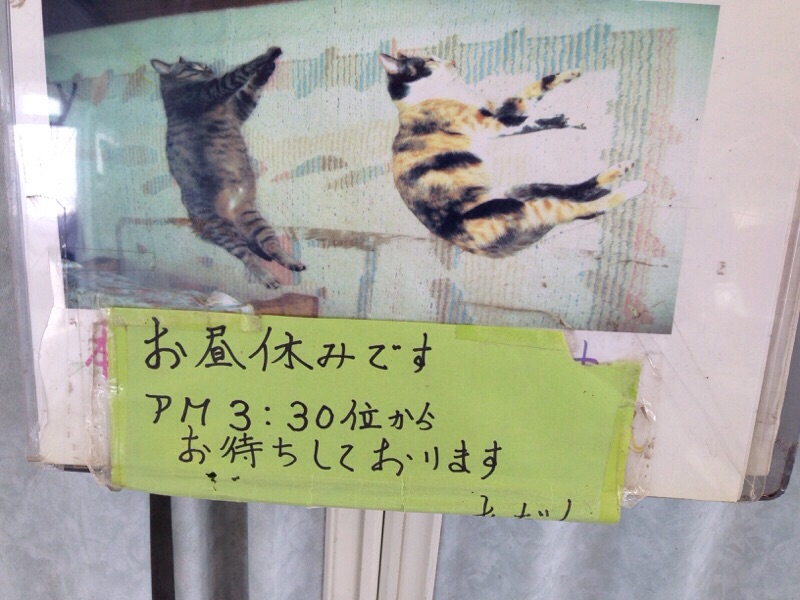 お昼休みです
PM 3:30位から
お待ちしております